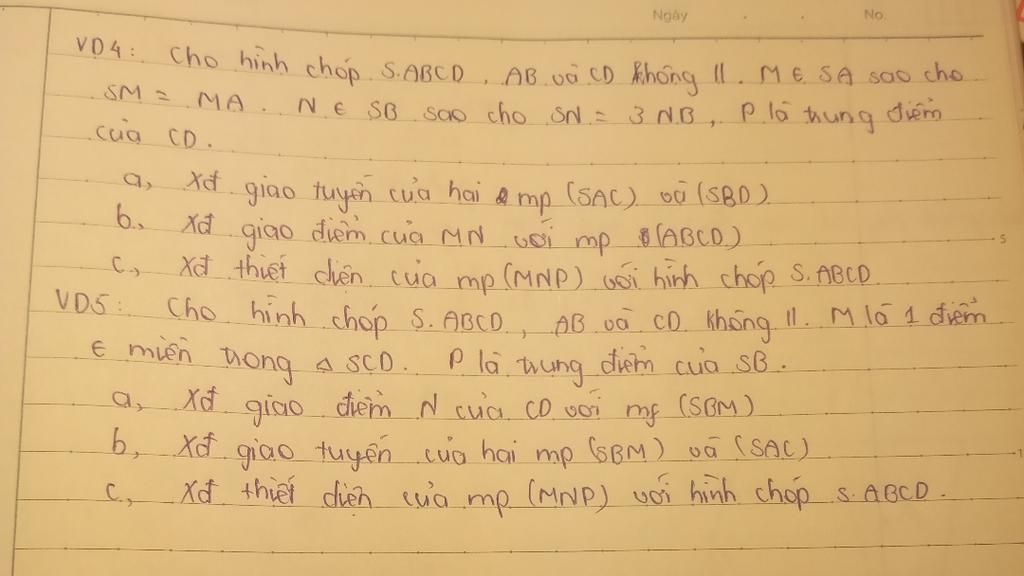 Ngày . . No.
VD4: Cho hình chóp S.ABCD, AB và CD không //. M ∈ SA sao cho
SM = MA. N ∈ SB sao cho SN = 3 NB, P là trung điểm
của CD.
a, Xđ giao tuyến của hai mp (SAC) và (SBD)
b, Xđ giao điểm của MN với mp (ABCD)
5
c, Xđ thiết diện của mp (MNP) với hình chóp S.ABCD
VD5: Cho hình chóp S.ABCD, AB và CD không //. M là 1 điểm
∈ miền trong △ SCD. P là trung điểm của SB.
a, Xđ giao điểm N của CD với mf (SBM)
b, Xđ giao tuyến của hai mp (SBM) và (SAC)
c, Xđ thiết diện của mp (MNP) với hình chóp S.ABCD.